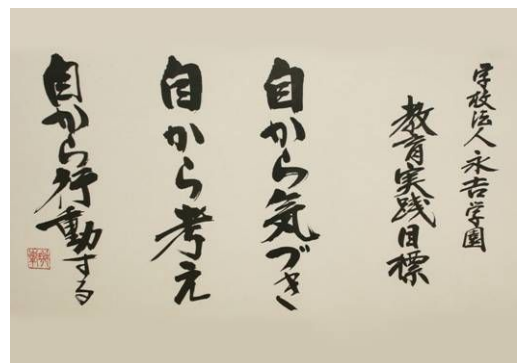 学校法人永吉学園
教育実践目標
自から気づき
自から考え
自から行動する